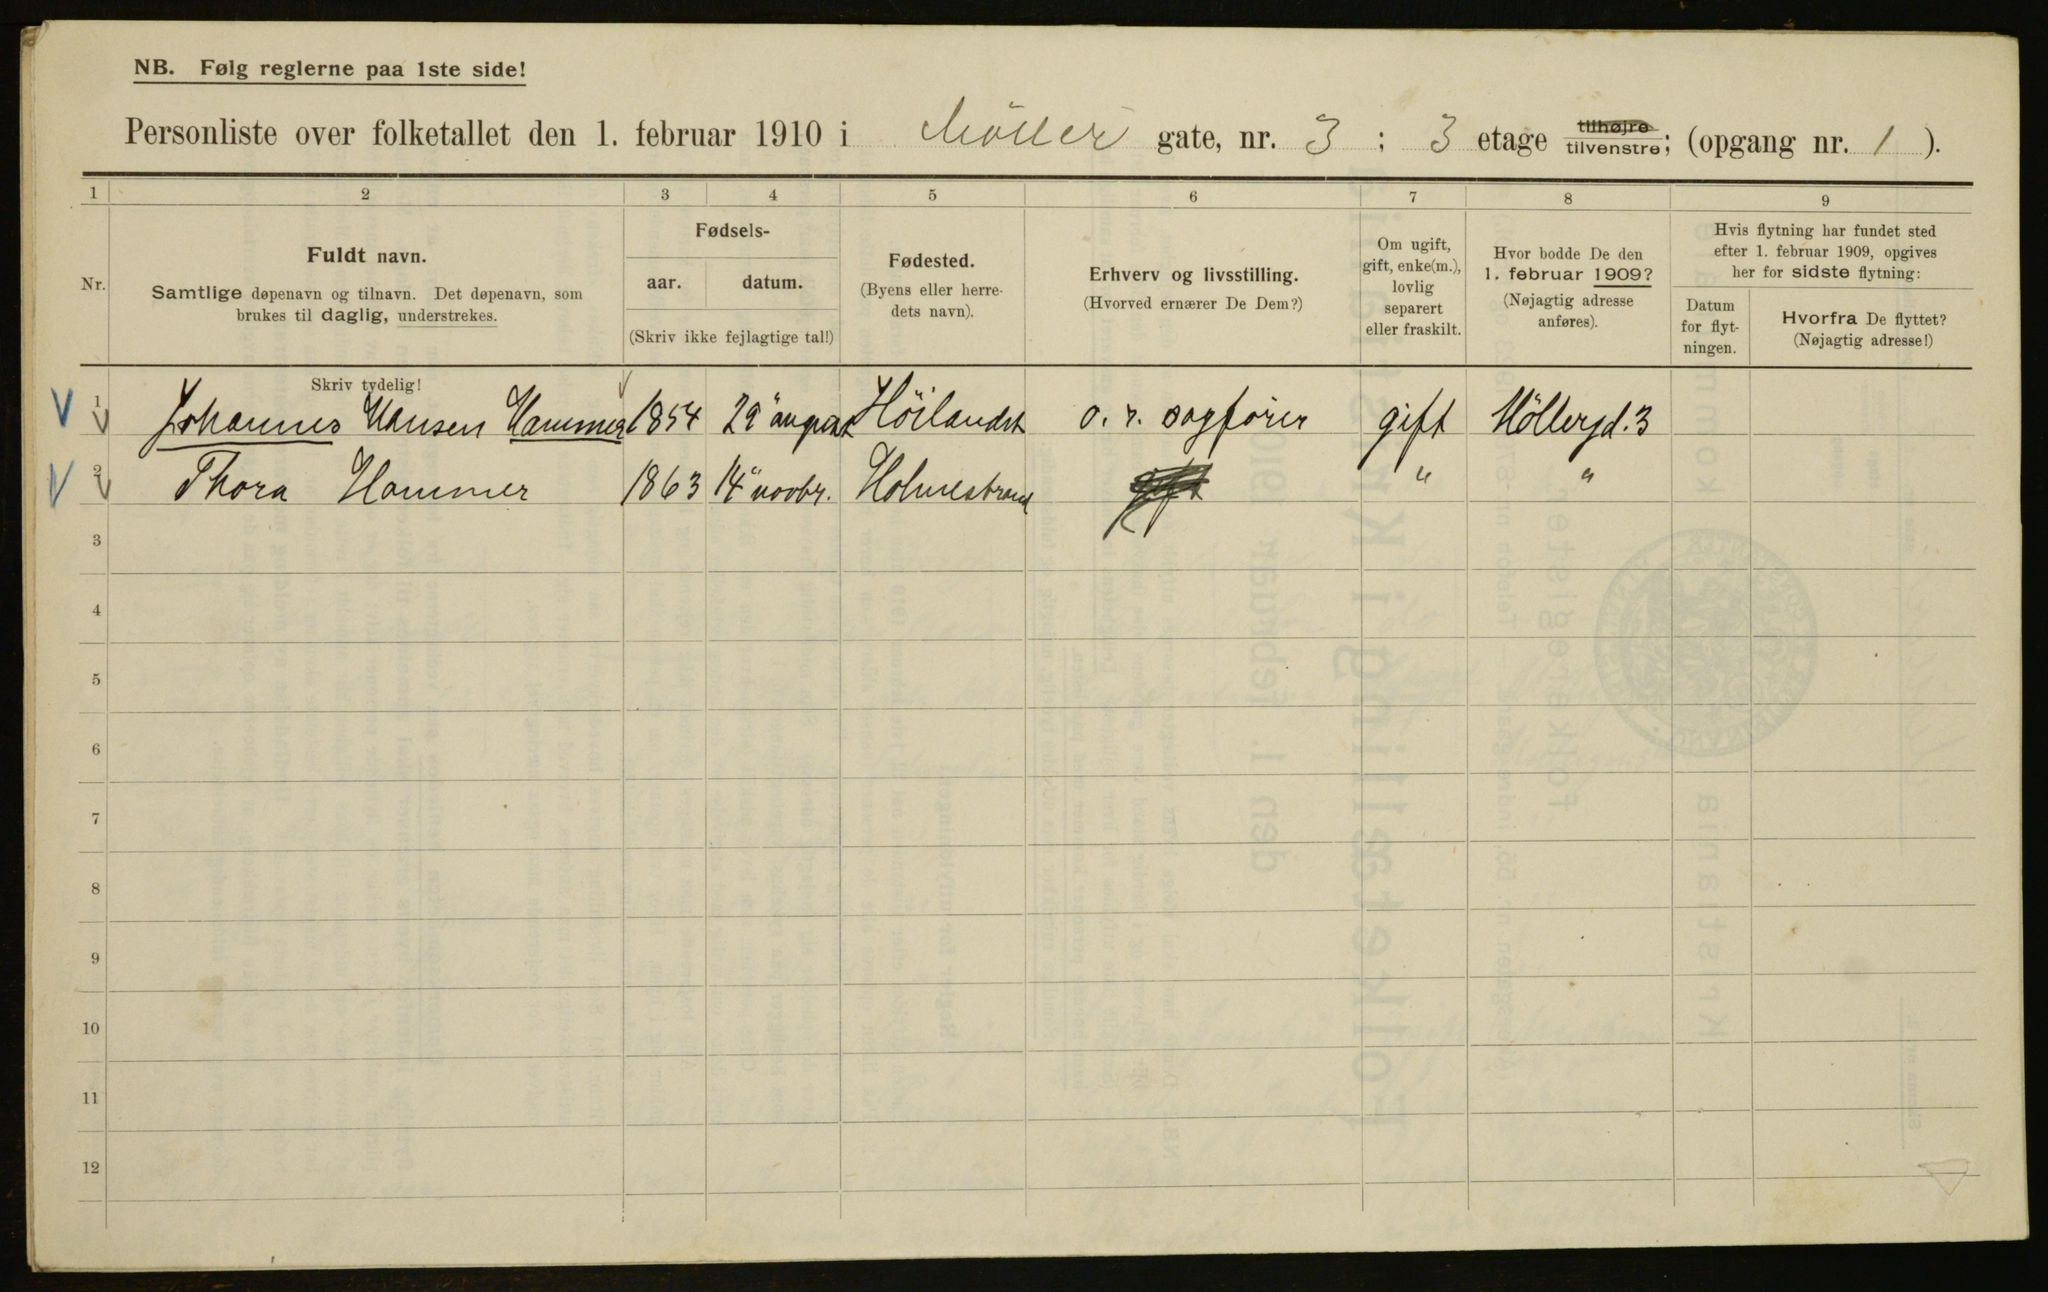 NB. Følg reglerne paa 1ste side!
Personliste over folketallet den 1. februar 1910 i Möller gate, nr. 3 ; 3 etage tilhøjre tilvenstre; (opgang nr. 1 ).
1 2 3 4 5 6 7 8 9
Nr.
Fuldt navn.
Samtlige døpenavn og tilnavn. Det døpenavn, som
brukes til daglig, understrekes.
Fødsels-
aar. datum.
(Skriv ikke fejlagtige tal!)
Fødested.
(Byens eller herre-
dets navn).
Erhverv og livsstilling.
(Hvorved ernærer De Dem?)
Om ugift,
gift, enke(m.),
lovlig
separert
eller fraskilt.
Hvor bodde De den
1. februar 1909?
(Nøjagtig adresse
anføres).
Hvis flytning har fundet sted
efter 1. februar 1909, opgives
her for sidste flytning:
Datum
for flyt-
ningen.
Hvorfra De flyttet?
(Nøjagtig adresse!)
Skriv tydelig!
1 Johannes Hansen Hammer 1854 29 august Höilandet o. r. sagförer gift Möllergd. 3
2 Thora Hammer 1863 14 novbr. Holmestrand " "
3
4
5
6
7
8
9
10
11
12